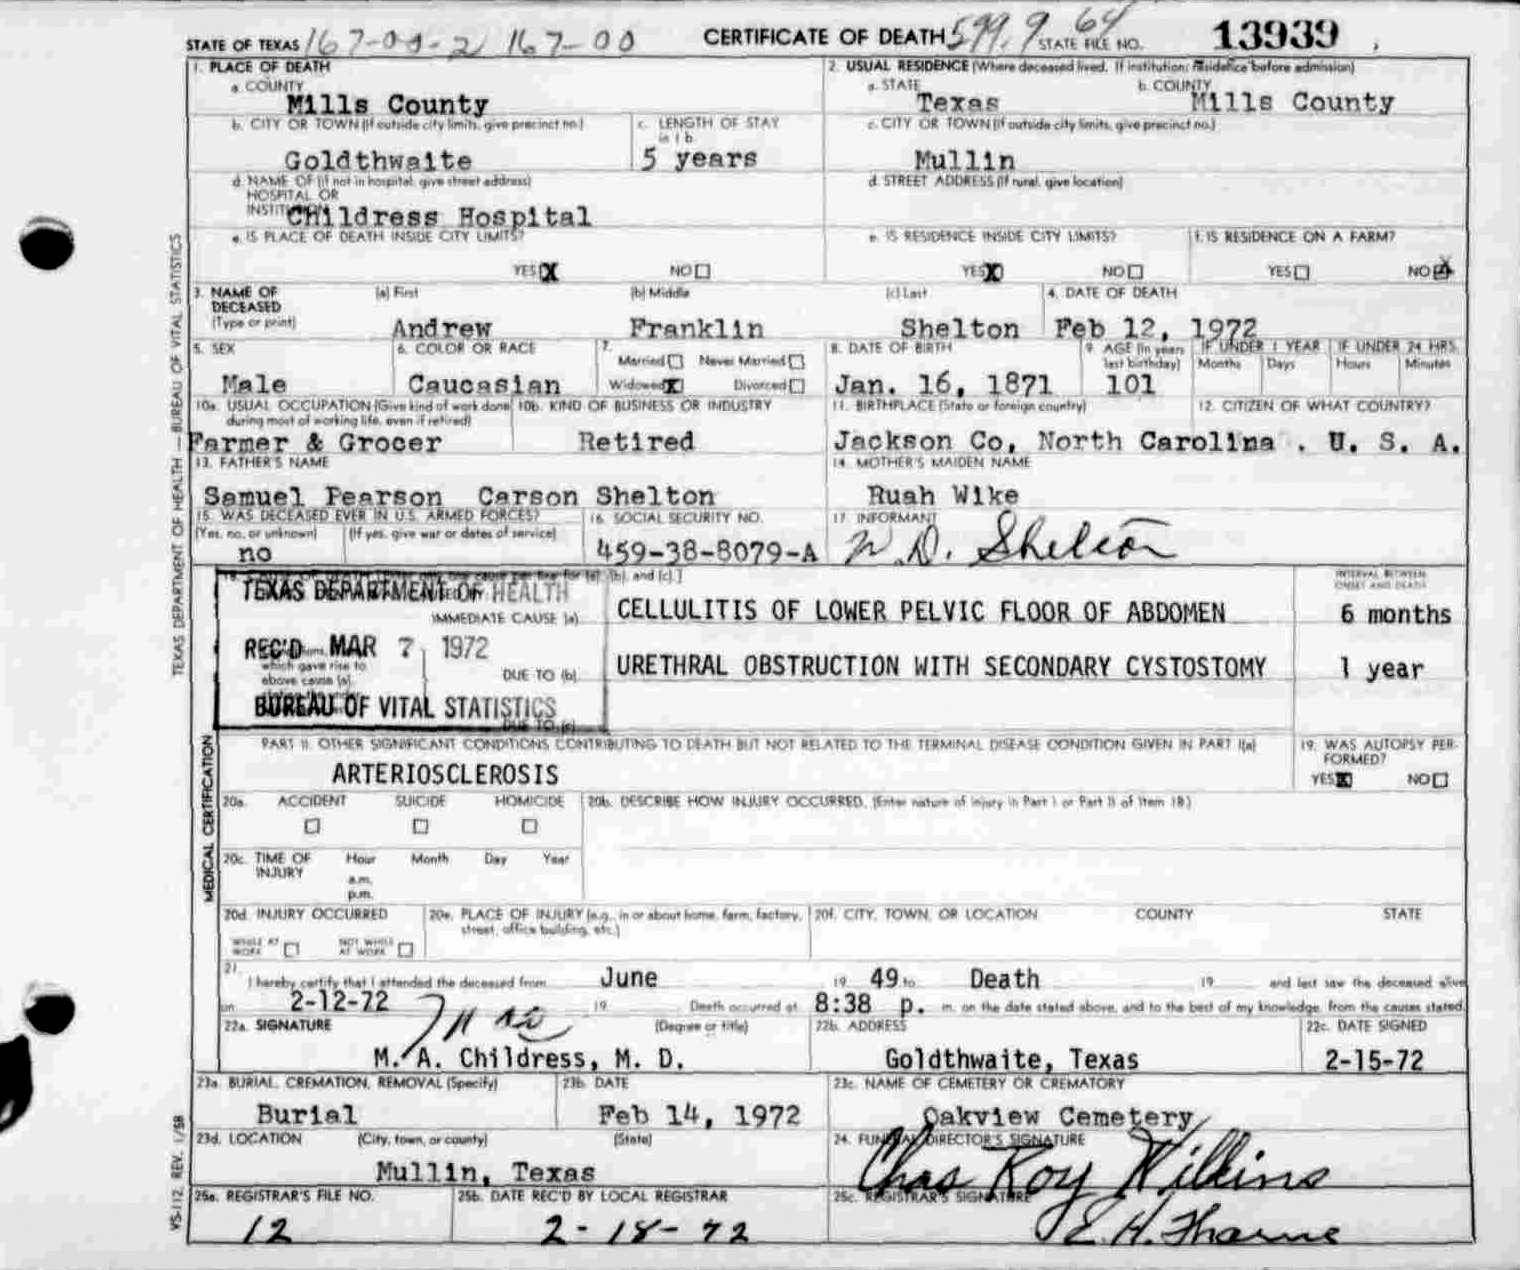 STATE OF TEXAS 167-00-2 167-00 CERTIFICATE OF DEATH 599.9 64 STATE FILE NO. 13939
1. PLACE OF DEATH
a. COUNTY
Mills County
2. USUAL RESIDENCE (Where deceased lived. If institution: residence before admission)
a. STATE b. COUNTY
Texas Mills County
b. CITY OR TOWN (If outside city limits, give precinct no.) c. LENGTH OF STAY in 1 b.
Goldthwaite 5 years
c. CITY OR TOWN (If outside city limits, give precinct no.)
Mullin
d. NAME OF (If not in hospital, give street address)
HOSPITAL OR
INSTITUTION Childress Hospital
d. STREET ADDRESS (If rural, give location)
e. IS PLACE OF DEATH INSIDE CITY LIMITS?
YES X NO
e. IS RESIDENCE INSIDE CITY LIMITS? f. IS RESIDENCE ON A FARM?
YES X NO YES NO X
3. NAME OF DECEASED (Type or print) (a) First (b) Middle (c) Last 4. DATE OF DEATH
Andrew Franklin Shelton Feb 12, 1972
5. SEX 6. COLOR OR RACE 7. Married Never Married Widowed X Divorced
Male Caucasian
8. DATE OF BIRTH 9. AGE (In years last birthday) IF UNDER 1 YEAR IF UNDER 24 HRS.
Months Days Hours Minutes
Jan. 16, 1871 101
10a. USUAL OCCUPATION (Give kind of work done during most of working life, even if retired) 10b. KIND OF BUSINESS OR INDUSTRY
Farmer & Grocer Retired
11. BIRTHPLACE (State or foreign country) 12. CITIZEN OF WHAT COUNTRY?
Jackson Co, North Carolina . U. S. A.
13. FATHER'S NAME 14. MOTHER'S MAIDEN NAME
Samuel Pearson Carson Shelton Ruah Wike
15. WAS DECEASED EVER IN U.S. ARMED FORCES? 16. SOCIAL SECURITY NO. 17. INFORMANT
(Yes, no, or unknown) (If yes, give war or dates of service)
no 459-38-8079-A W. D. Shelton
(b), and (c).]
INTERVAL BETWEEN ONSET AND DEATH
TEXAS DEPARTMENT OF HEALTH
REC'D MAR 7 1972
BUREAU OF VITAL STATISTICS
IMMEDIATE CAUSE (a) CELLULITIS OF LOWER PELVIC FLOOR OF ABDOMEN 6 months
which gave rise to
above cause (a)
DUE TO (b) URETHRAL OBSTRUCTION WITH SECONDARY CYSTOSTOMY 1 year
DUE TO (c)
PART II. OTHER SIGNIFICANT CONDITIONS CONTRIBUTING TO DEATH BUT NOT RELATED TO THE TERMINAL DISEASE CONDITION GIVEN IN PART I(a)
ARTERIOSCLEROSIS
19. WAS AUTOPSY PERFORMED?
YES X NO
20a. ACCIDENT SUICIDE HOMICIDE 20b. DESCRIBE HOW INJURY OCCURRED. (Enter nature of injury in Part I or Part II of item 18.)
20c. TIME OF INJURY Hour Month Day Year
a.m.
p.m.
20d. INJURY OCCURRED
WHILE AT WORK NOT WHILE AT WORK
20e. PLACE OF INJURY (e.g., in or about home, farm, factory, street, office building, etc.)
20f. CITY, TOWN, OR LOCATION COUNTY STATE
21. I hereby certify that I attended the deceased from June 19 49 to Death 19 and last saw the deceased alive
on 2-12-72 19 Death occurred at 8:38 p. m. on the date stated above, and to the best of my knowledge, from the causes stated.
22a. SIGNATURE (Degree or title) 22b. ADDRESS 22c. DATE SIGNED
M. A. Childress, M. D. Goldthwaite, Texas 2-15-72
23a. BURIAL, CREMATION, REMOVAL (Specify) 23b. DATE 23c. NAME OF CEMETERY OR CREMATORY
Burial Feb 14, 1972 Oakview Cemetery
23d. LOCATION (City, town, or county) (State) 24. FUNERAL DIRECTOR'S SIGNATURE
Mullin, Texas Chas Roy Wilkins
25a. REGISTRAR'S FILE NO. 25b. DATE REC'D BY LOCAL REGISTRAR 25c. REGISTRAR'S SIGNATURE
12 2-18-72 E. H. Tharne
TEXAS DEPARTMENT OF HEALTH — BUREAU OF VITAL STATISTICS
MEDICAL CERTIFICATION
VS-112 REV. 1/58